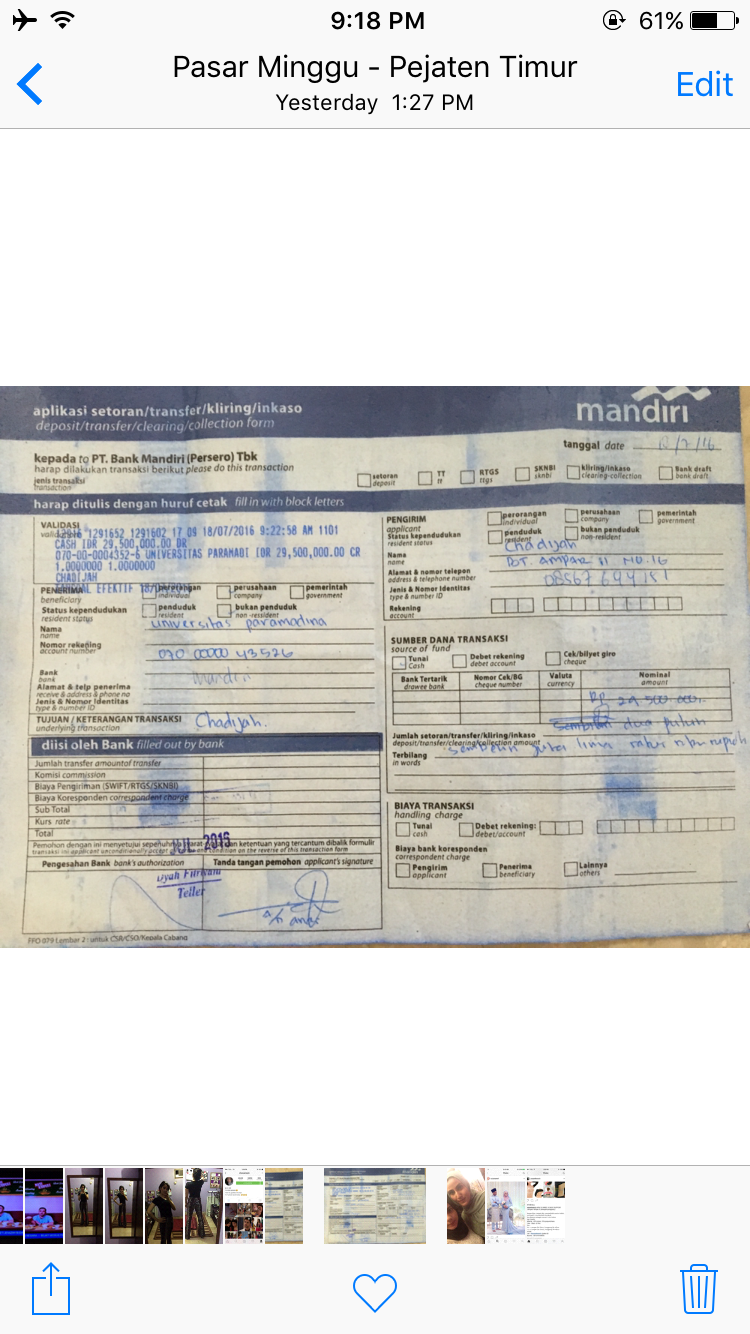 9:18 PM
61%
Pasar Minggu - Pejaten Timur
Yesterday 1:27 PM
Edit
aplikasi setoran/transfer/kliring/inkaso
deposit/transfer/clearing/collection form
mandiri
tanggal date
kepada to PT. Bank Mandiri (Persero) Tbk
harap dilakukan transaksi berikut please do this transaction
jenis transaksi
transaction
setoran
deposit
TT
tt
RTGS
rtgs
SKNBI
sknbi
kliring/inkaso
clearing-collection
Bank draft
bank draft
harap ditulis dengan huruf cetak fill in with block letters
VALIDASI
1291652 1291602 17 09 18/07/2016 9:22:58 AM 1101
CASH IDR 29,500,000.00 DR
070-00-0004352-6 UNIVERSITAS PARAMADI IDR 29,500,000.00 CR
1.0000000 1.0000000
CHADIJAH
EFEKTIF
PENERIMA
beneficiary
perorangan
individual
perusahaan
company
pemerintah
government
Status kependudukan
resident status
penduduk
resident
bukan penduduk
non-resident
Nama
name
universitas paramadina
Nomor rekening
account number
Bank
bank
Mandiri
Alamat & telp penerima
receive & address & phone no
Jenis & Nomor Identitas
type & number ID
TUJUAN / KETERANGAN TRANSAKSI
underlying transaction
Chadijah.
diisi oleh Bank filled out by bank
Jumlah transfer amountof transfer
Komisi commission
Biaya Pengiriman (SWIFT/RTGS/SKNBI)
Biaya Koresponden correspondent charge
Sub Total
Kurs rate
Total
Pengesahan Bank bank's authorization
Tanda tangan pemohon applicant's signature
Teller
FFO 079 Lembar 2 : untuk CSR/CSO/Kepala Cabang
PENGIRIM
applicant
perorangan
individual
perusahaan
company
pemerintah
government
Status kependudukan
resident status
penduduk
resident
bukan penduduk
non-resident
Nama
name
Chadijah
Alamat & nomor telepon
address & telephone number
Jenis & Nomor Identitas
type & number ID
Rekening
account
SUMBER DANA TRANSAKSI
source of fund
Tunai
Cash
Debet rekening
debet account
Cek/bilyet giro
cheque
Bank Tertarik
drawee bank
Nomor Cek/BG
cheque number
Valuta
currency
Nominal
amount
Rp 29.500.000.
Jumlah setoran/transfer/kliring/inkaso
deposit/transfer/clearing/collection amount
dua puluh
Terbilang
in words
Sembilan juta lima ratus ribu rupiah
BIAYA TRANSAKSI
handling charge
Tunai
cash
Debet rekening:
debet/account
Biaya bank koresponden
correspondent charge
Pengirim
applicant
Penerima
beneficiary
Lainnya
others